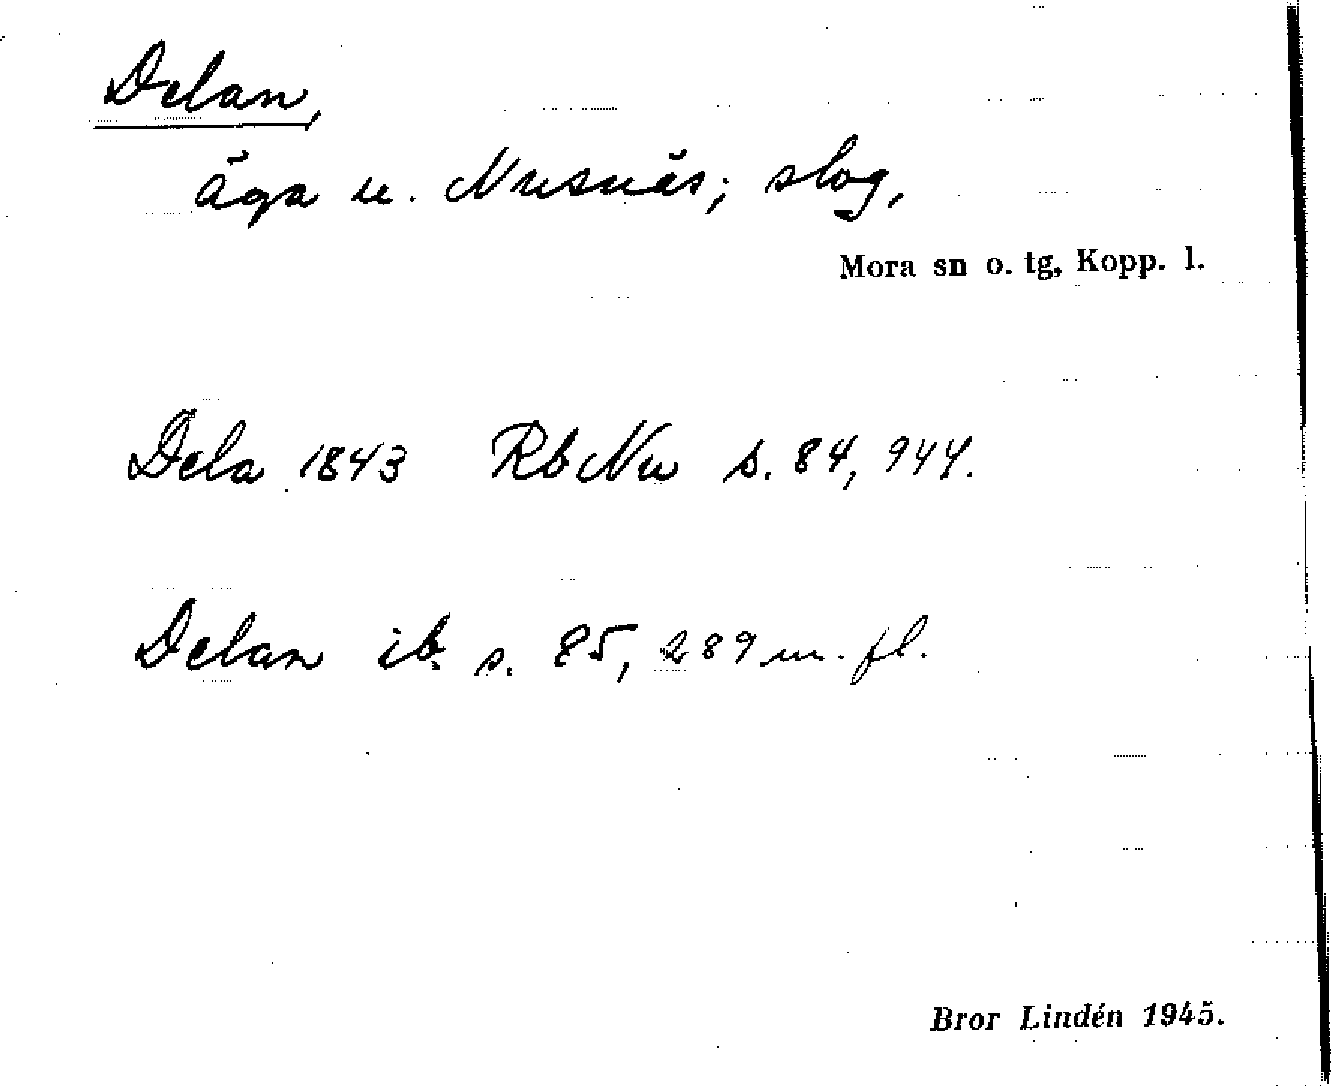 Delan,
äga u. Nusnäs; slog,
Mora sn o. tg, Kopp. l.
Dela 1843 RbNu s. 84, 944.
Delan ib. s. 85, 289 m. fl.
Bror Lindén 1945.